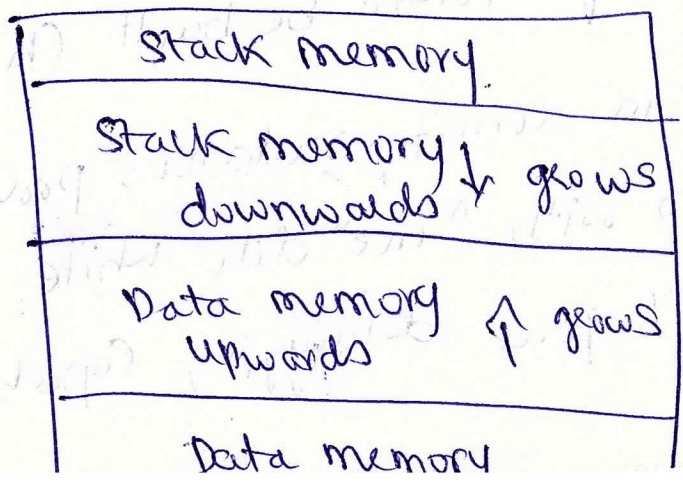 Stack memory.
Stack memory ↓ grows
downwards
Data memory ↑ grows
upwards
Data memory